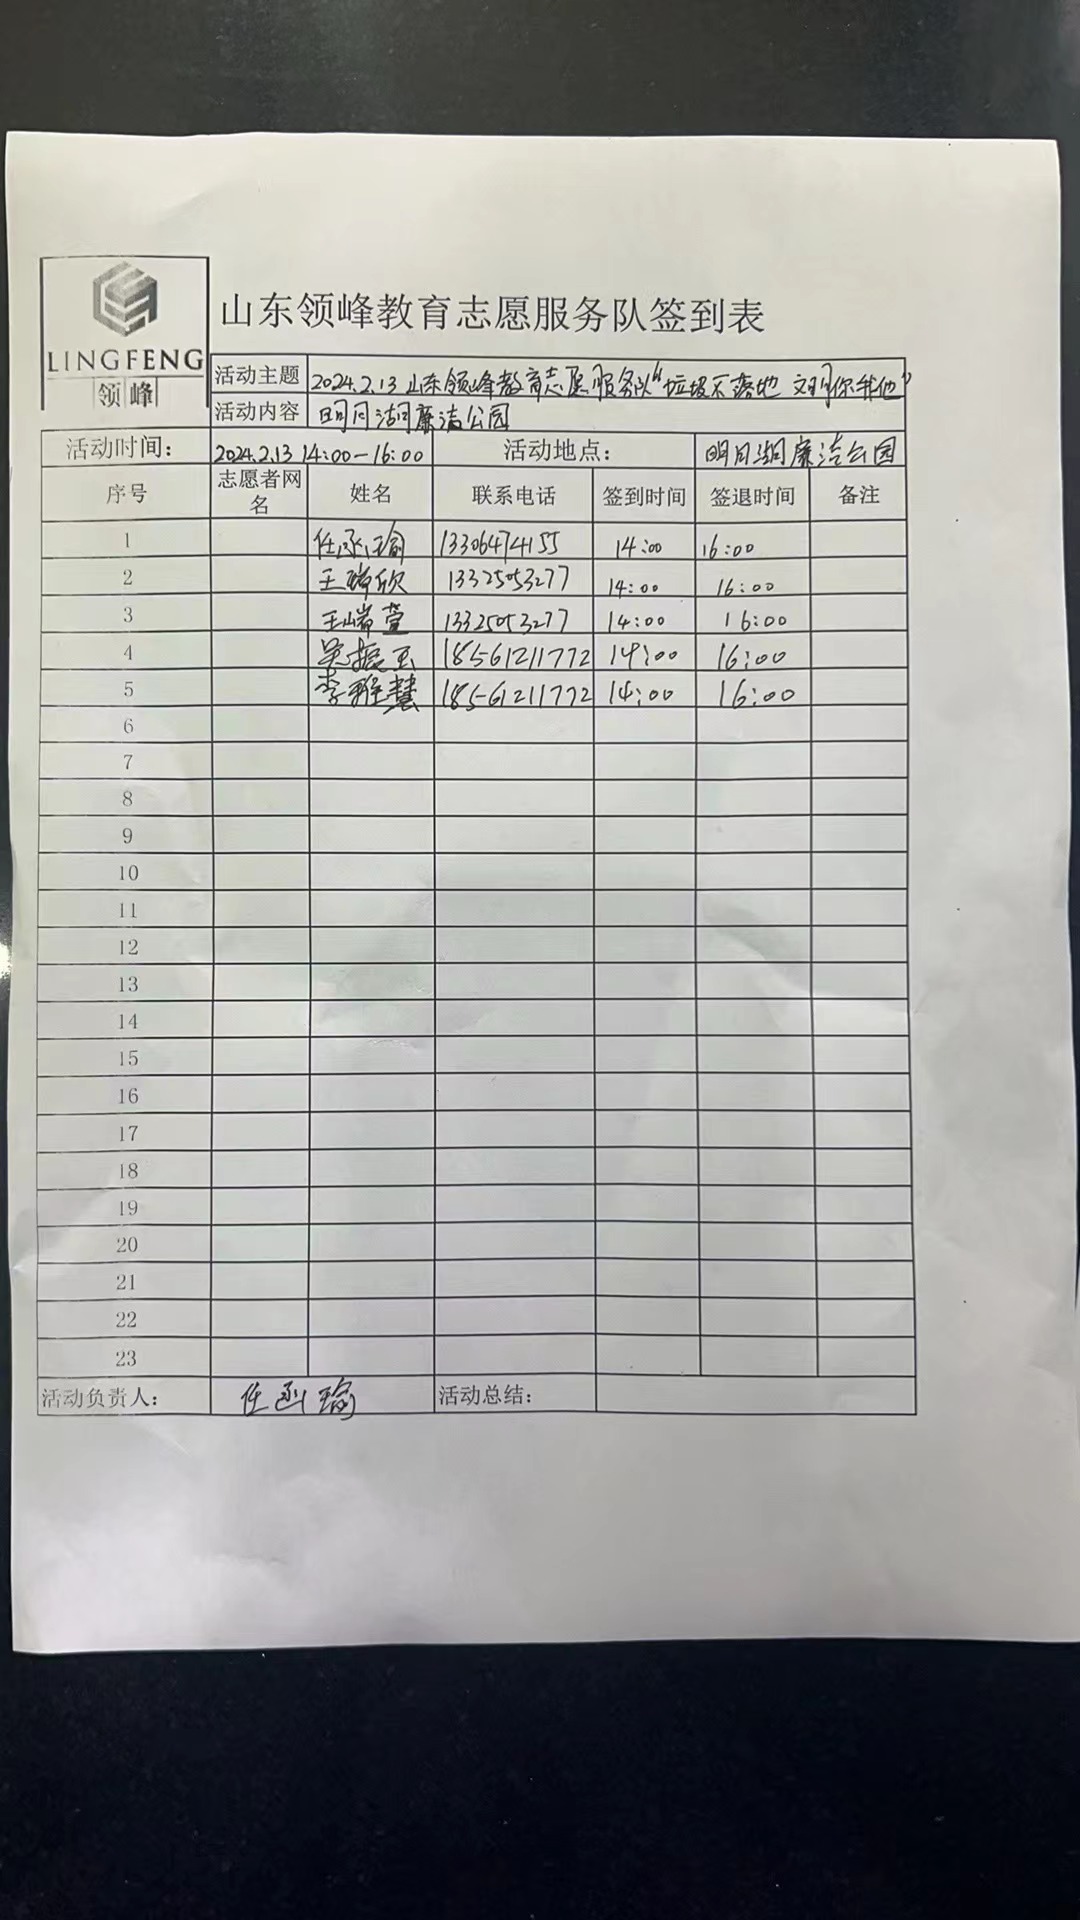 山东领峰教育志愿服务队签到表
LINGFENG
领峰
活动主题 2024.2.13 山东领峰教育志愿服务队“垃圾不落地 文明你我他”
活动内容 明月湖廉洁公园
活动时间： 2024.2.13 14:00-16:00 活动地点： 明月湖廉洁公园
序号 志愿者网名 姓名 联系电话 签到时间 签退时间 备注
1 任函瑜 13306474155 14:00 16:00
2 王瑞欣 13325053277 14:00 16:00
3 王瑞萱 13325053277 14:00 16:00
4 吴振玉 18561211772 14:00 16:00
5 李雅慧 18561211772 14:00 16:00
6
7
8
9
10
11
12
13
14
15
16
17
18
19
20
21
22
23
活动负责人： 任函瑜 活动总结：